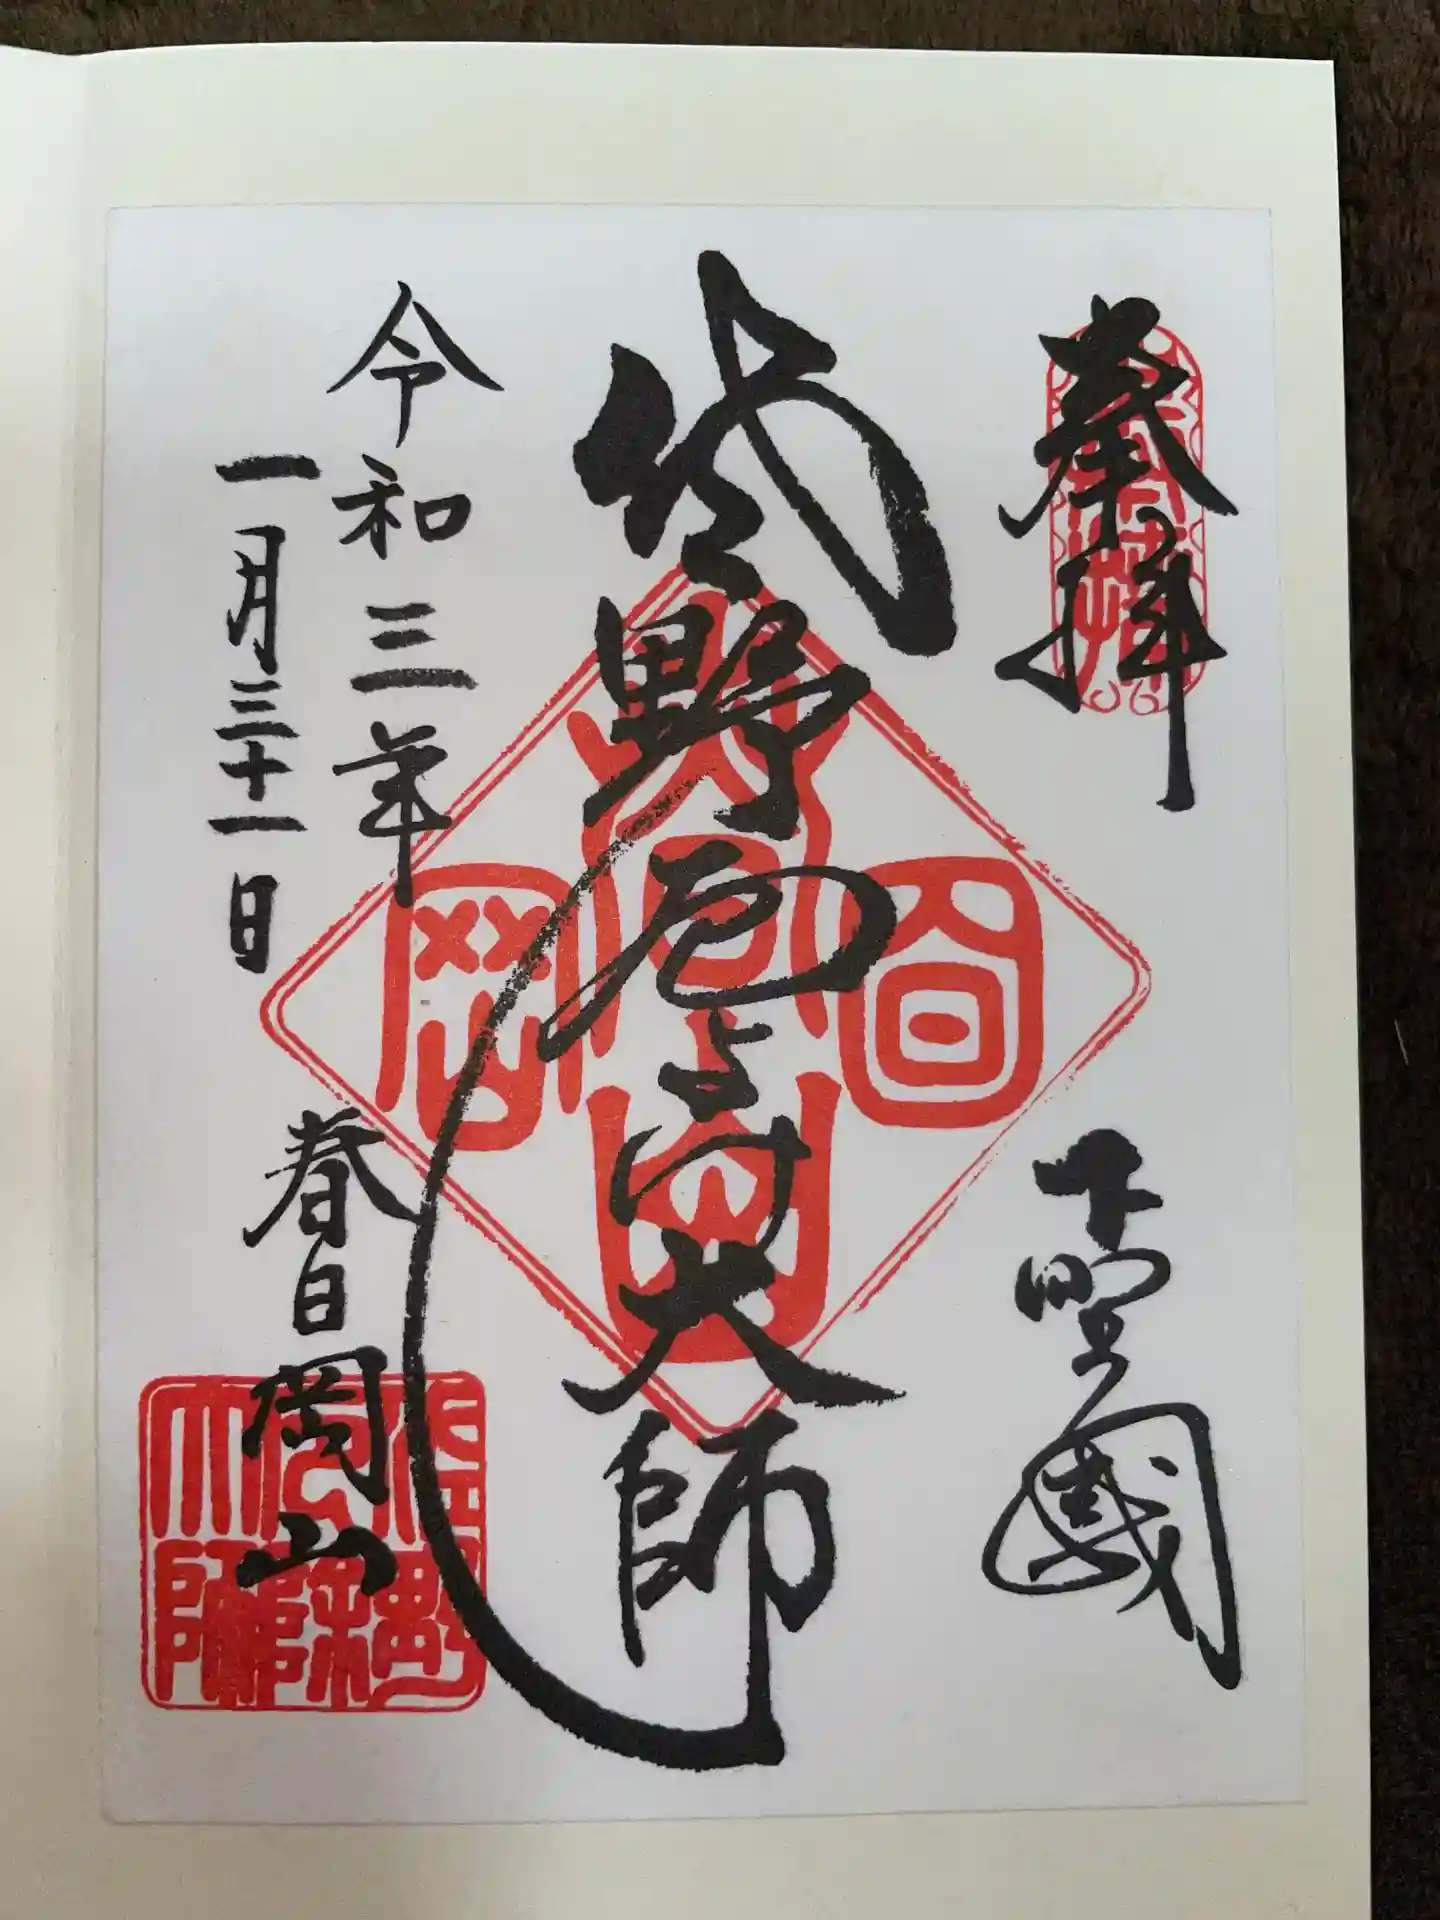 奉拝
下野國
佐野厄よけ大師
令和三年
一月三十一日
春日岡山